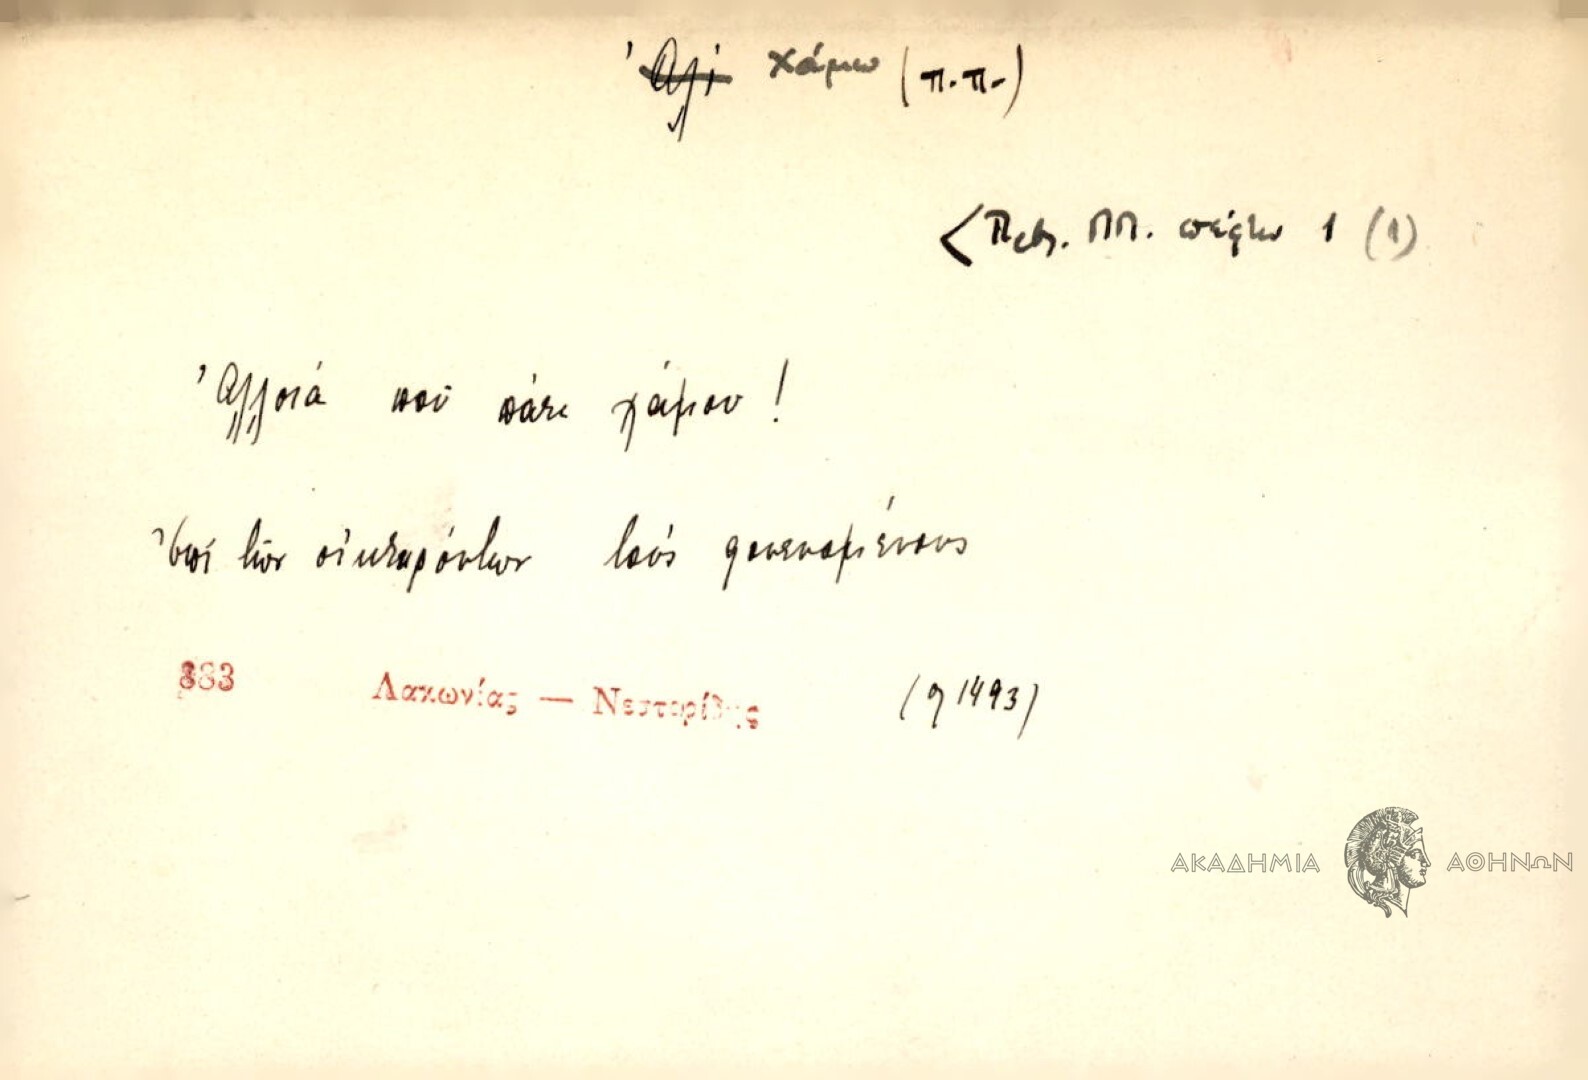 Ἀλί χάμω (π.π.)
< Πεβ. ΠΠ. 1 (1)
Ἀλλοιά ποῦ πάτε χάμου!
Ἐπί τῶν οἰκτειρόντων τούς φονευομένους
383 Λακωνίας — Νεστορίδης (η 1493)
ΑΚΑΔΗΜΙΑ ΑΘΗΝΩΝ